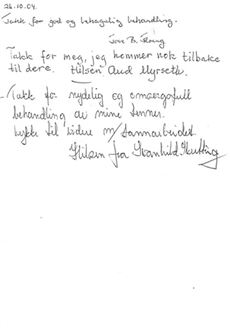 26.10.04.
Takk for god og behagelig behandling.
Tove B.
Takk for meg, jeg kommer nok tilbake
til dere. Hilsen Aud Myrseth.
- Takk for nydelig og omsorgsfull
behandling av mine tenner.
Lykke til videre m/ tannarbeidet
Hilsen fra Ragnhild